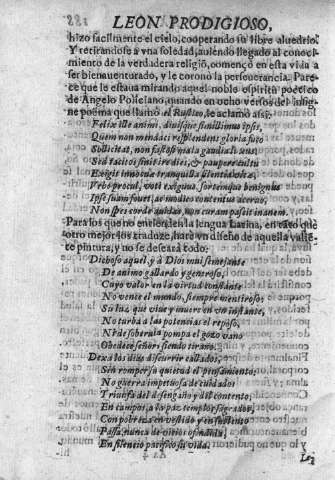 LEON PRODIGIOSO,
hizo facilmente el cielo, cooperando su libre aluedrio.
Y retirandose a vna soledad, auiendo llegado al conoci-
miento de la verdadera religiõ, começò en esta vida a
ser bienauenturado, y le coronò la perseuerancia. Pare-
ce que le estaua mirando aquel noble espiritu poetico
de Angelo Policiano, quando en ocho versos del insig-
ne poëma que llamò el Rustico, le aclamò assi:
Felix ille animi, diuisque simillimus ipsis,
Quem non mendaci resplendens gloria fuco
Sollicitat, non fastosi mala gaudia luxus:
Sed tacitos sinit ire dies, & paupere cultu
Exigit innocuæ tranquilla silentia vitæ,
Vrbe procul, voti exiguus, sortemque benignus
Ipse suam fouet, ac modico contentus aceruo,
Non spes corde auidas, non curam pascit inanem.
Para los que no entienden la lengua Latina, en tãto que
otro mejor los traduze, harà vn diseño de aquella valiẽ-
te pintura, y no se deseará todo:
Dichoso aquel, y à Dios mui semejante
De animo gallardo y generoso,
Cuyo valor en la virtud constante
No vence el mundo, siempre mentiroso:
Su luz, que viue y muere en vn instante,
No turba à las potencias el reposo,
Ni de soberuia pompa el gozo vano
Obedece señor, siendo tirano.
Dexa los dias discurrir callados,
Sin romper su quietud el pensamiento;
No guerra impetuosa de cuidados
Triunfa del desengaño, y del contento,
En campos, à la paz templos sagrados,
Con pobreza en vestido y en sustento
Passa, nunca de vicios ofendida,
En silencio pacifico su vida.
A a 4
Le-